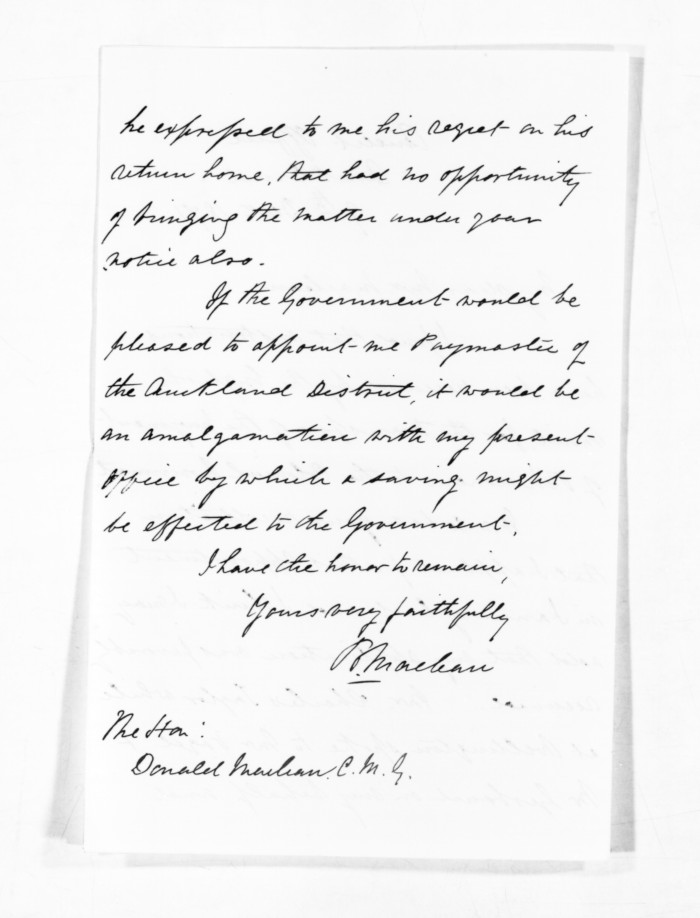 he expressed to me his regret on his
return home, that had no opportunity
of bringing the matter under your
notice also.
If the Government would be
pleased to appoint me Paymaster of
the Auckland District, it would be
an amalgamation with my present
office by which a saving might
be effected to the Government.
I have the honor to remain,
Yours very faithfully
Maclean
The Hon:
Donald Maclean. C. M. G.